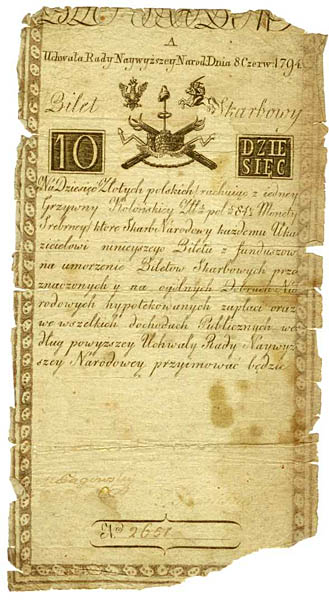 A
Uchwała Rady Naywyższey Narod: Dnia 8 Czerw: 1794
Bilet Skarbowy
10 DZIE
SIĘC
Na Dziesięc Złotych polskich rachuiąc z iedney
Grzywny Kolońskiey Zł: pol: 84½ Monety
Srebrney ktore Skarb Narodowy każdemu Uka
zicielowi ninieyszego Biletu z funduszow
na umorzenie Biletow Skarbowych prze
znaczonych y na ogulnych Dobrach Na
rodowych hypotekowanych zapłaci oraz
we wszelkich dochodach Publicznych we
dług powyższey Uchwały Rady Naywyż
szey Narodowey przyimować będzie
No 2651